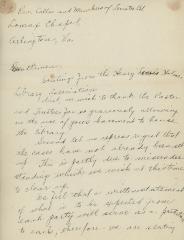 Rev. Collins and Members of Trustee Bd.
Lomax Chapel,
Arlington, Va.
Gentlemen:
Greetings from the Henry Louis Holmes
Library Association
First we wish to thank the Pastor
and Trustees for so graciously allowing
us the use of your basement to house
the library.
Second let us express regret that
the rooms have not already been set
up. This is partly due to misunder-
standing which we wish at this time
to clear up.
We feel that a written statement
of what is to be expected from
each party will serve as a guide
to each, therefore we are stating